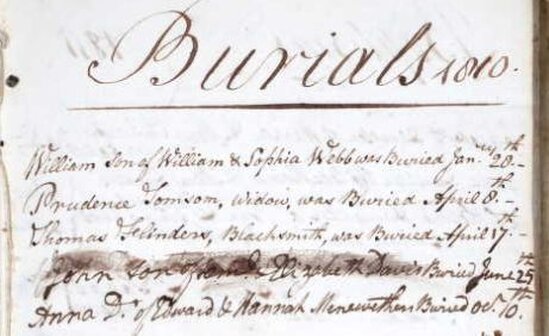 Burials 1810.
William Son of William & Sophia Webb was Buried Jan.ry 20.th
Prudence Tomsom, widow, was Buried April 8.th
Thomas Flinders, Blacksmith, was Buried April 17.th
John son Elizabeth Davis Buried June 25.th
Anna D.r of Edward & Hannah Buried Oct. 10.th